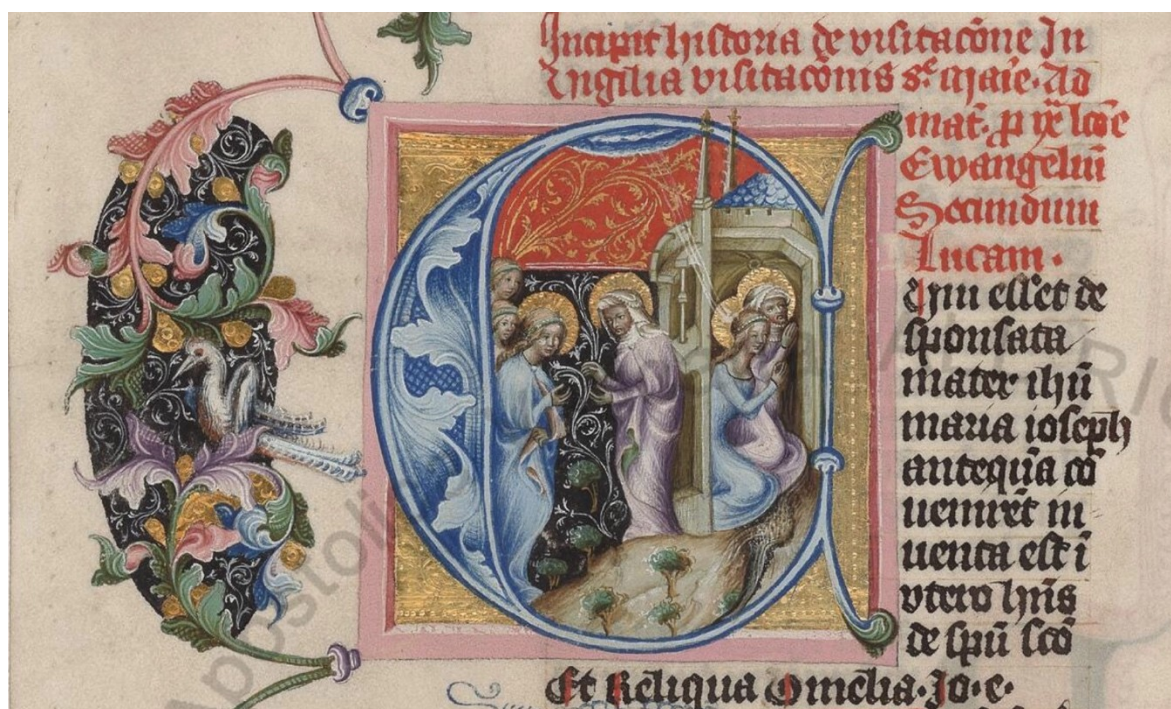 Incipit historia de visitacõne In
Vigilia visitacõnis sc̃ marie. Ad
mat. p̱ ix lcõe
Ewangeliũ
Secundum
Lucam.
Cum esset de
sponsata
mater ihũ
maria ioseph
anteq̃a cõ
uenirẽt in
uenta est ĩ
vtero hñs
de spũ scõ
Et Reliqua Omelia. Jo. e.
Apostoli